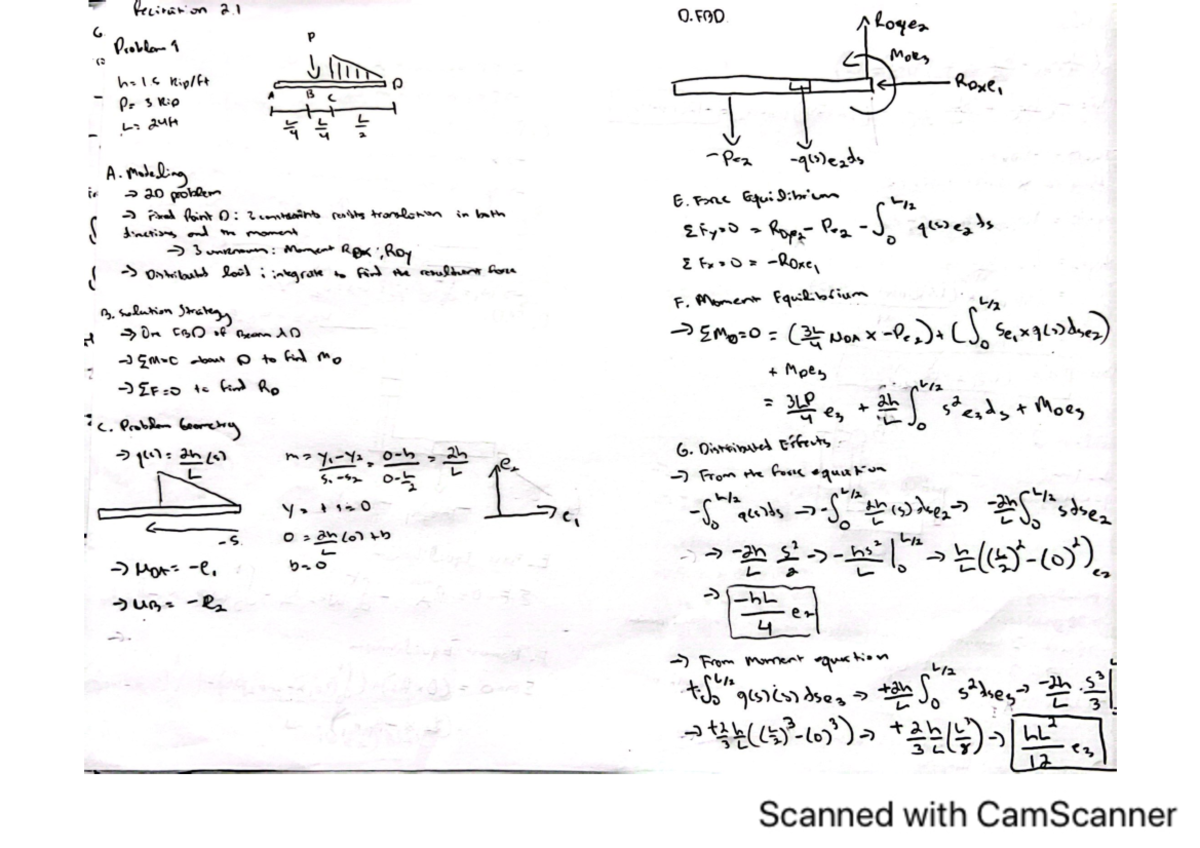 Recitation 2.1
Problem 1
h = 1.5 kip/ft
P = 3 kip
L = 24ft
P
A B C D
L/4 L/4 L/2
A. Modeling
→ 2D problem
→ Fixed Point D: 2 constraints resists translation in both
directions and the moment
→ 3 unknowns: Moment RDx, RDy
→ Distributed load: integrate to find the resultant force
B. Solution Strategy
→ Draw FBD of Beam AD
→ ΣM=0 about D to find MD
→ ΣF=0 to find RD
C. Problem Geometry
→ q(s) = 2h/L (s)
m = (y1-y2)/(s1-s2) = (0-h)/(0-L/2) = 2h/L
0 = 2h/L (0) + b
b=0
e2
e1
-s
→ UDA = -e1
→ UB = -e2
D. FBD
RDy e2
MD e3
RDx e1
-P e2
-q(s) e2 ds
E. Force Equilibrium
ΣFy=0 = RDy e2 - P e2 - ∫0^L/2 q(s) e2 ds
ΣFx=0 = -RDx e1
F. Moment Equilibrium
→ ΣMD=0 = (3L/4 UDA x -P e2) + (∫0^L/2 s e1 x q(s) ds e2)
+ MD e3
= 3LP/4 e3 + 2h/L ∫0^L/2 s² e3 ds + MD e3
G. Distributed Effects
→ From the force equation
-∫0^L/2 q(s) ds → -∫0^L/2 2h/L (s) ds e2 → -2h/L ∫0^L/2 s ds e2
→ -2h/L s²/2 → -hs²/L |0^L/2 → h/L ((L/2)² - (0)²) e2
→ -hL/4 e2
→ From moment equation
+∫0^L/2 q(s)(s) ds e3 → +2h/L ∫0^L/2 s² ds e3 → -2h/L · s³/3 |
→ +2/3 h/L ((L/2)³ - (0)³) → +2/3 h/L (L³/8) → hL²/12 e3
Scanned with CamScanner